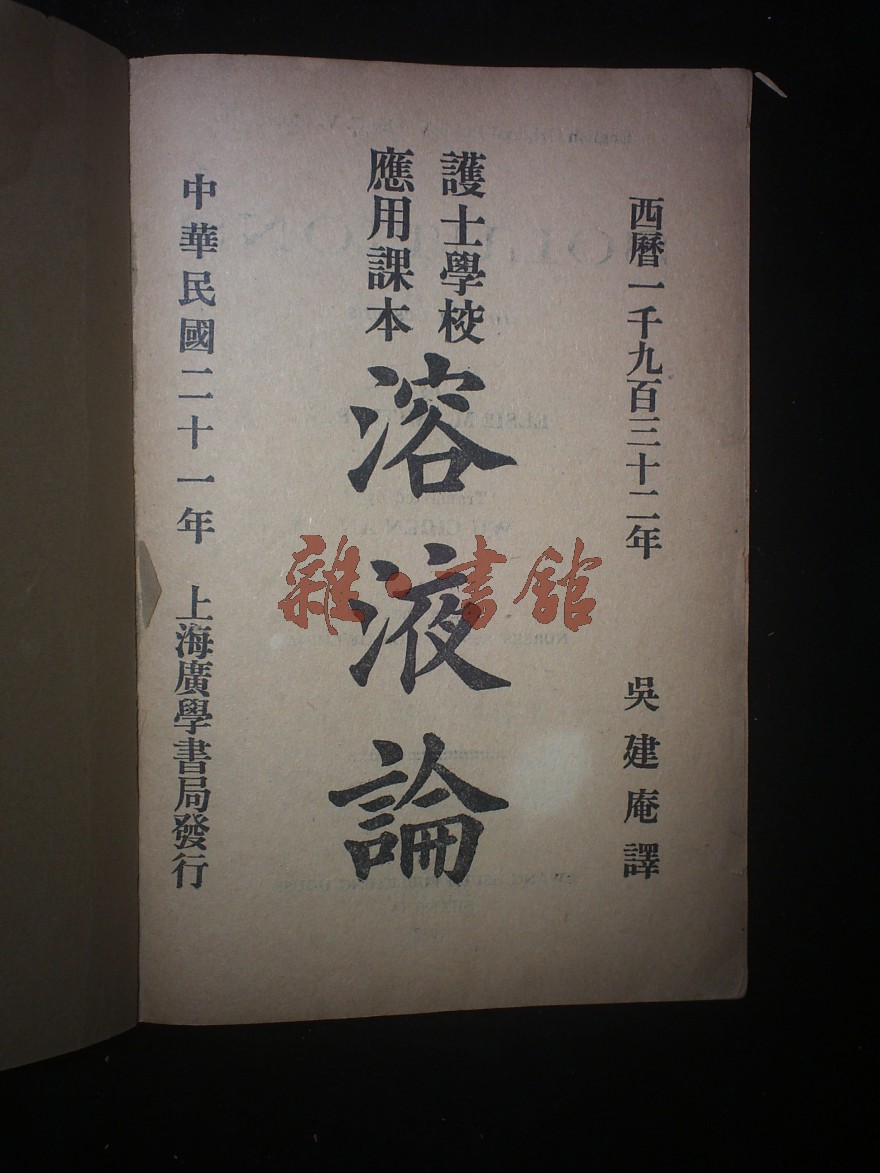 西曆一千九百三十二年
吳建庵譯
護士學校
應用課本
溶液論
中華民國二十一年
上海廣學書局發行
雜·書館